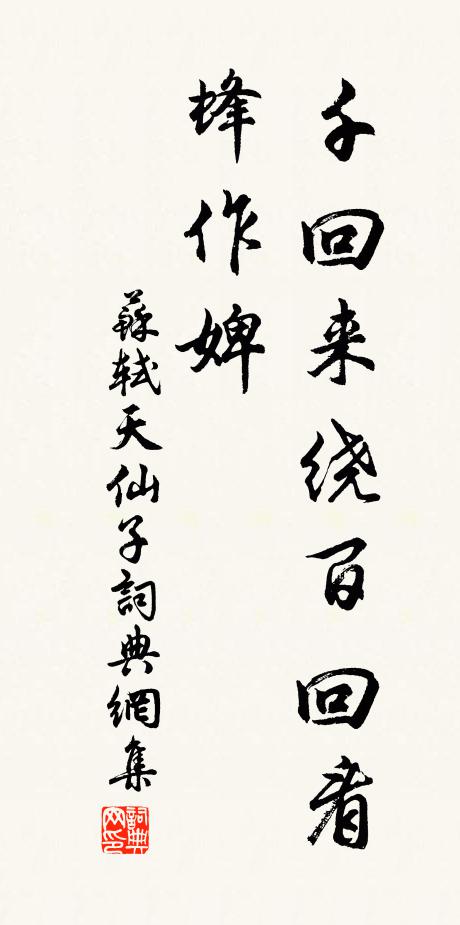 千回来绕百回看
蜂作婢
蘇軾天仙子詞典網集
詞典
网印